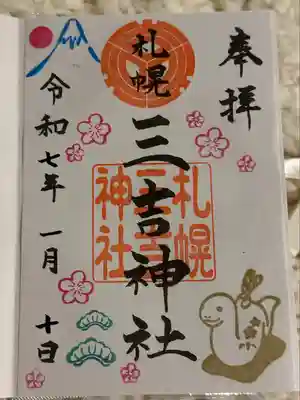 奉拝
札幌
三吉神社
札幌
三吉
神社
令和七年 一月 十日